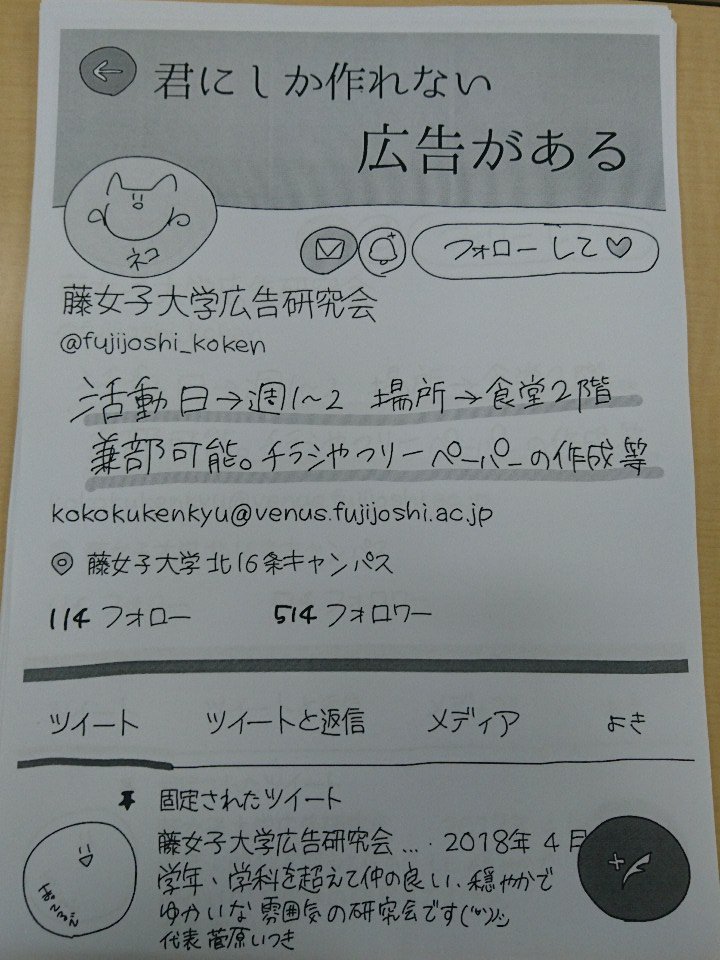 君にしか作れない
広告がある
ネコ
フォローして♡
藤女子大学広告研究会
@fujijoshi_koken
活動日→週1~2 場所→食堂2階
兼部可能。チラシやフリーペーパーの作成等
kokokukenkyu@venus.fujijoshi.ac.jp
藤女子大学北16条キャンパス
114 フォロー 514 フォロワー
ツイート ツイートと返信 メディア よき
固定されたツイート
藤女子大学広告研究会 ... · 2018年 4月
学年、学科を超えて仲の良い、穏やかで
ゆかいな雰囲気の研究会です
代表 菅原いつき